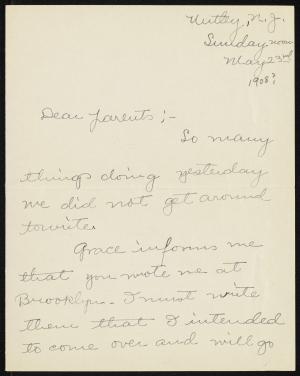 Nutley, N.J.
Sunday noon
May 23rd
1908?
Dear Parents;-
So many
things doing yesterday
we did not get around
to write.
Grace informs me
that you wrote me at
Brooklyn. I must write
them that I intended
to come over and will go